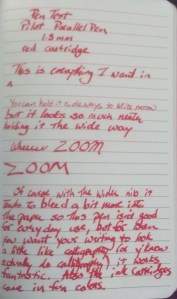 Pen Test
Pilot Parallel Pen
1.5 mm
red cartridge
This is everything I want in
a
You can hold it sideways to write narrow
but it looks so much neater
holding it the wide way
wheeeee ZOOM
ZOOM
Of course with the wider nib it
tends to bleed a bit more into
the paper so this pen isn't good
for everyday use, but for when
you want your writing to look
a little like calligraphy (or y'know
actually do calligraphy), it works
fantastic. Also the ink cartridges
come in fun colors.